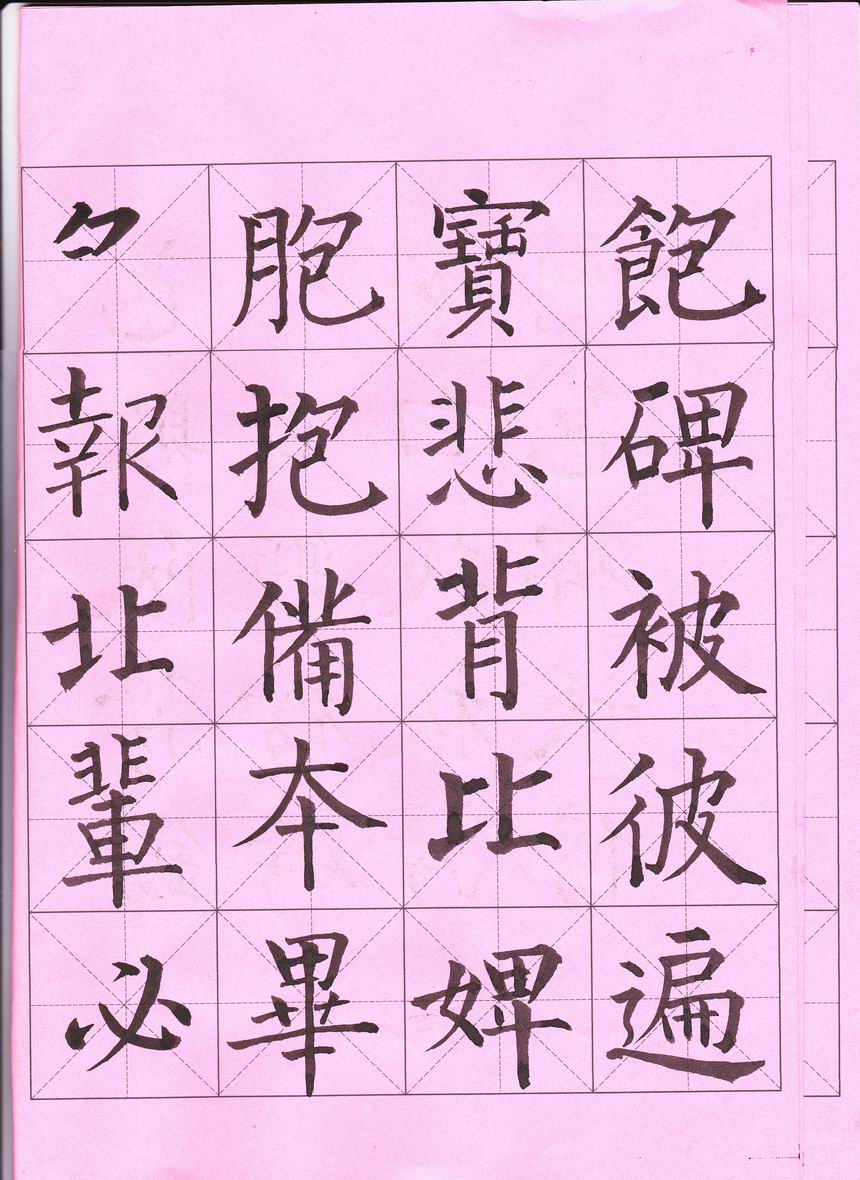 胞寶飽
報抱悲碑
北備背被
輩本比彼
必畢婢遍